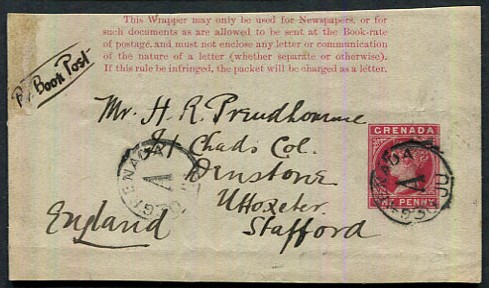 This Wrapper may only be used for Newspapers, or for
such documents as are allowed to be sent at the Book-rate
of postage, and must not enclose any letter or communication
of the nature of a letter (whether separate or otherwise).
If this rule be infringed, the packet will be charged as a letter.
Book Post
Mr. H. R. Prudhomme
St Chads Col.
Denstone
Uttoxeter
Stafford
England
GRENADA
ONE PENNY
GRENADA
A
A